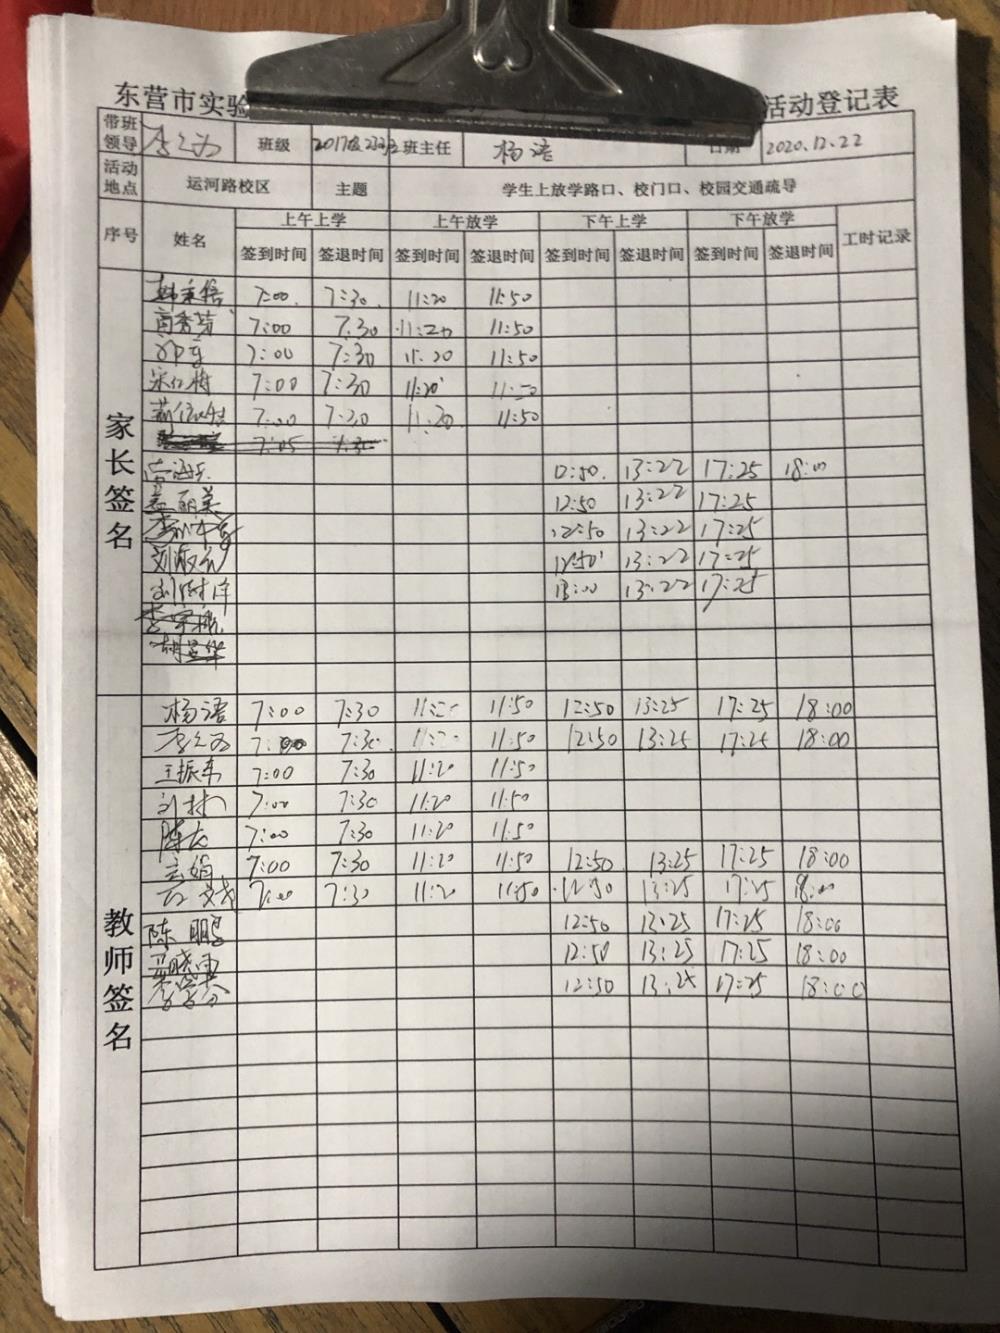 东营市实验 活动登记表
带班领导 李 班级 2017级 班主任 杨语 日期 2020.12.22
活动地点 运河路校区 主题 学生上放学路口、校门口、校园交通疏导
序号 姓名 上午上学 上午放学 下午上学 下午放学 工时记录
签到时间 签退时间 签到时间 签退时间 签到时间 签退时间 签到时间 签退时间
家长签名
7:00 7:30 11:20 11:50
7:00 7:30 11:20 11:50
7:00 7:30 11:20 11:50
7:00 7:30 11:20 11:50
7:00 7:30 11:20 11:50
7:05
13:22 17:25 18:00
丽美 12:50 13:22 17:25
李 12:50 13:22 17:25
刘 12:50 13:22 17:25
刘 13:00 13:22 17:25
李
胡
教师签名
杨语 7:00 7:30 11:20 11:50 12:50 13:25 17:25 18:00
李 7:00 7:30 11:20 11:50 12:50 13:25 17:25 18:00
王振东 7:00 7:30 11:20 11:50
7:00 7:30 11:20 11:50
陈 7:00 7:30 11:20 11:50
娟 7:00 7:30 11:20 11:50 12:50 13:25 17:25 18:00
7:00 7:30 11:20 11:50 12:50 13:25 17:25 18:00
陈鹏 12:50 13:25 17:25 18:00
晓 12:50 13:25 17:25 18:00
12:50 13:25 17:25 18:00